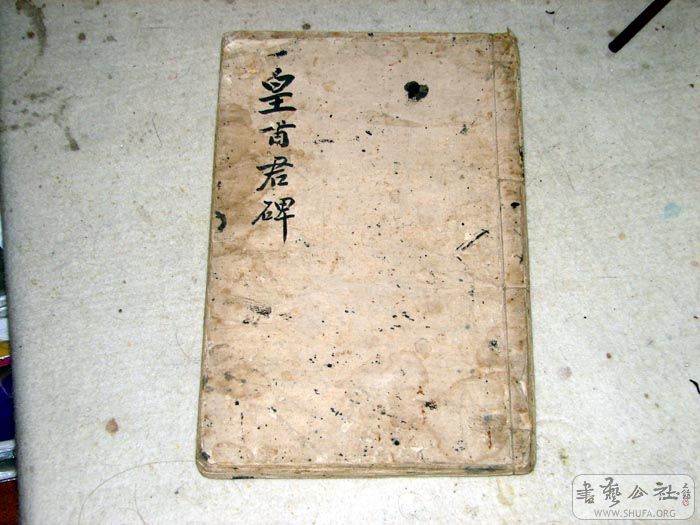 皇甫君碑
書藝公社
WWW.SHUFA.ORG